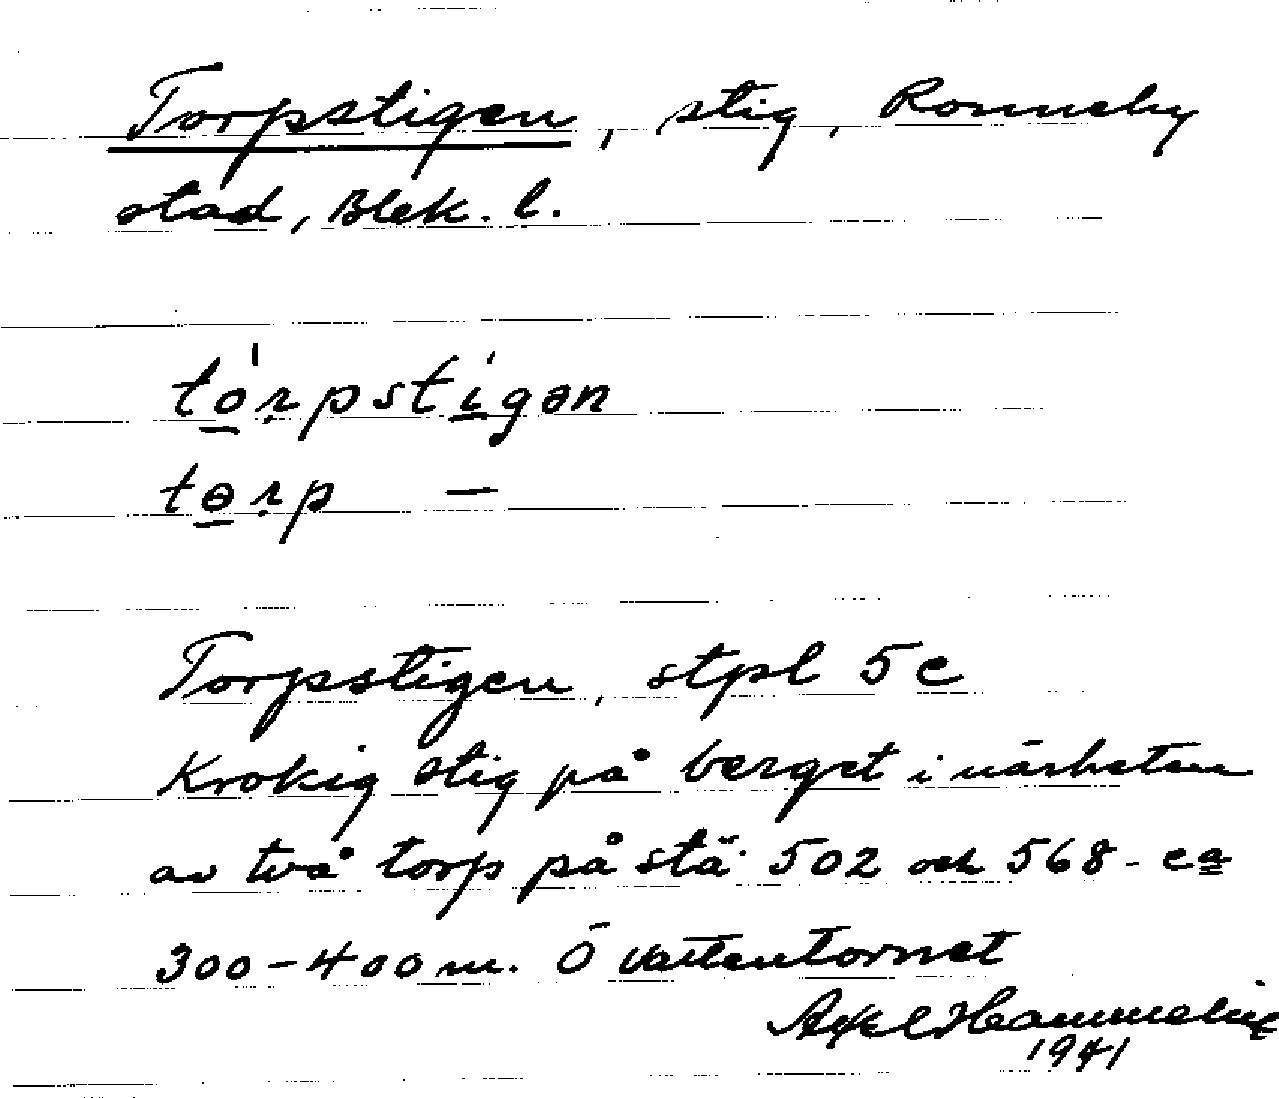 Torpstigen, stig, Ronneby
stad, Blek. l.
tórpstigən
tɵrp —
Torpstigen, stpl 5 e
Krokig stig på berget i närheten
av två torp på stä. 502 och 568 - ca
300-400 m. Ö vattentornet
Axel
1941